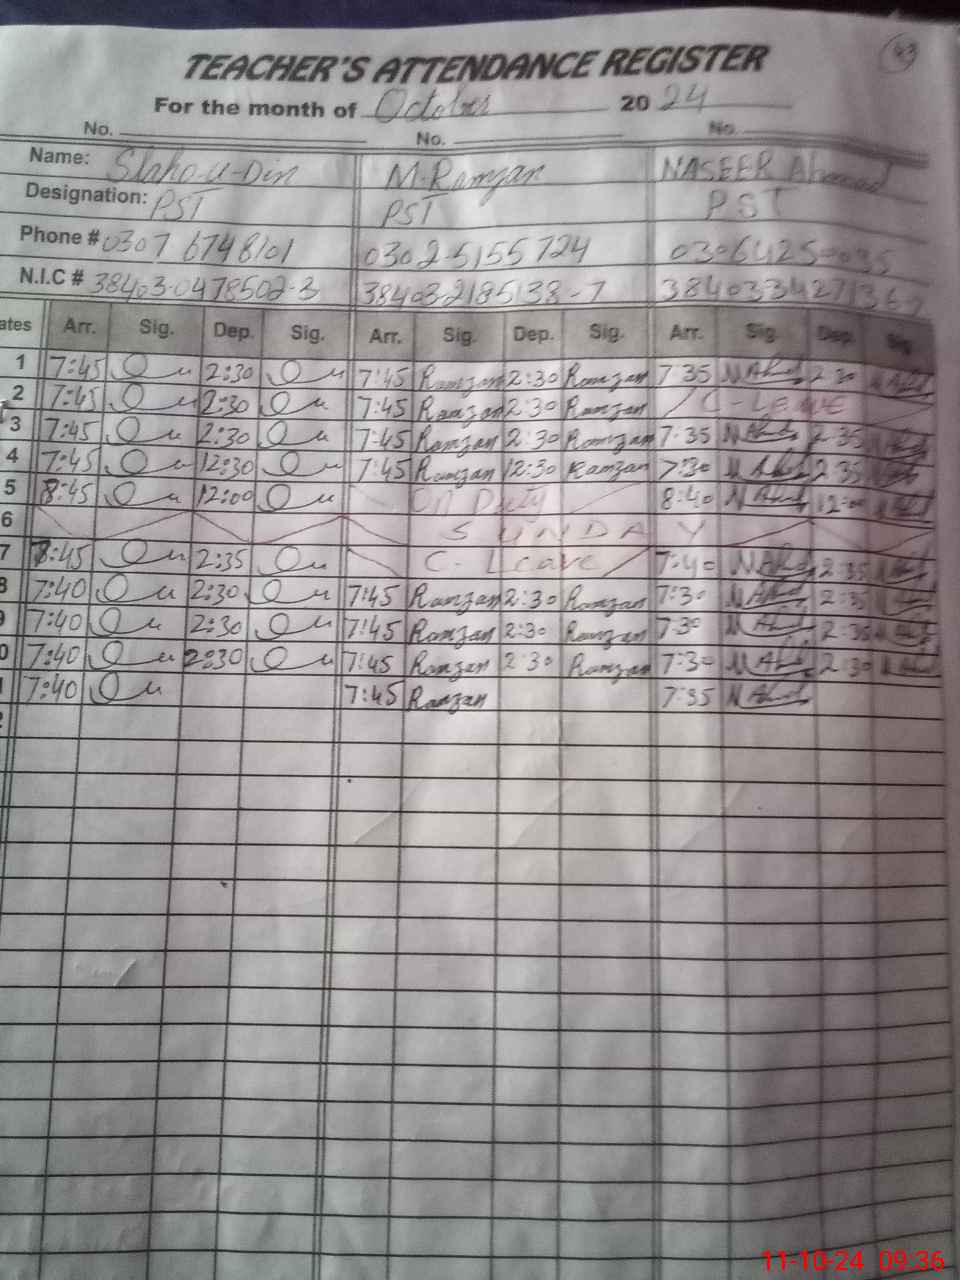 43
TEACHER'S ATTENDANCE REGISTER
For the month of October 2024
No. No. No.
Name: Slaho-u-Din M.Ramzan NASEER Ahmad
Designation: PST PST PST
Phone # 0307 6748101 0302-5155724
N.I.C # 38403-0478502-3 384032185138-7
ates Arr. Sig. Dep. Sig. Arr. Sig. Dep. Sig. Arr. Sig. Dep. Sig.
1 7:45 2:30 7:45 Ramzan 2:30 Ramzan 7 35 N Ahmd 2 30 N Ahmd
2 7:45 2:30 7:45 Ramzan 2:30 Ramzan C-Leave
3 7:45 2:30 7:45 Ramzan 2:30 Ramzan 7-35 N Ahmd 2:35
4 7:45 12:30 7:45 Ramzan 12:30 Ramzan 7:30 N Ahmd 2:35
5 8:45 12:00 On Duty 8:40 N Ahmd 12:00
6 SUNDAY
7 8:45 2:35 C. Leave 7:40 N Ahmd 2:35
8 7:40 2:30 7:45 Ramzan 2:30 Ramzan 7:30 N Ahmd 2:35
7:40 2:30 7:45 Ramzan 2:30 Ramzan 7:30 N Ahmd 2:35
0 7:40 2:30 7:45 Ramzan 2:30 Ramzan 7:30 N Ahmd 2:30 N Ahmd
7:40 7:45 Ramzan 7:35 N Ahmd
11-10-24 09:36